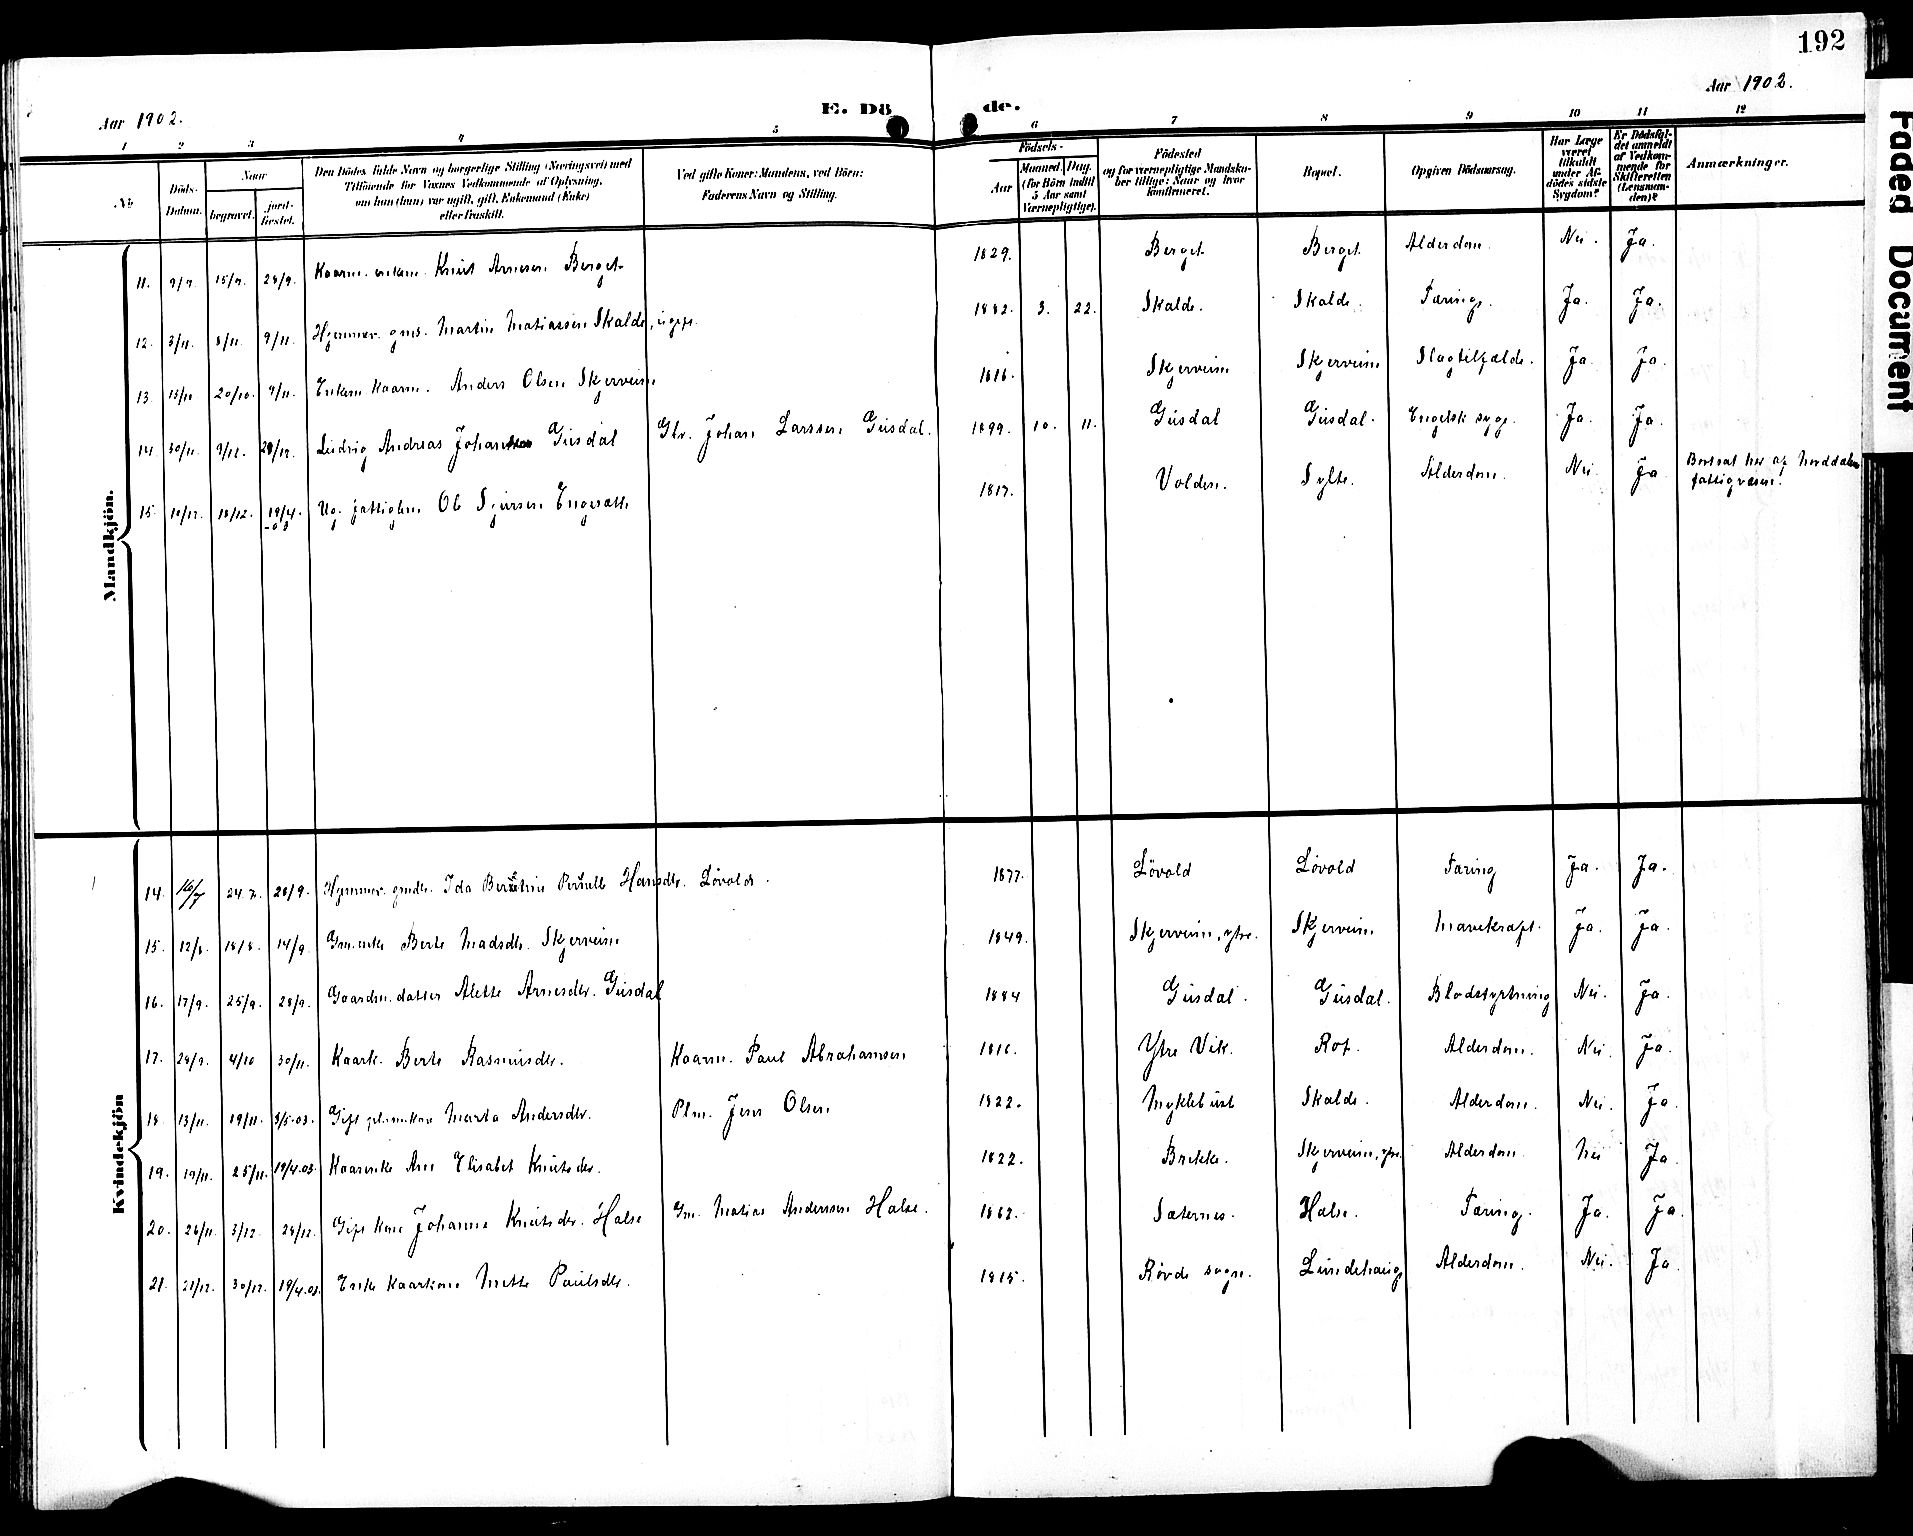 192
Aar 1902.
E. Dö de.
Aar 1902.
1 2 3 4 5 6 7 8 9 10 11 12
No.
Döds-Datum.
Naar
begravet.
jord-fæstet.
Den Dödes fulde Navn og borgerlige Stilling (Næringsvei) med
Tilföiende for Voxnes Vedkommende af Oplysning,
om han (hun) var ugift, gift, Enkemand (Enke)
eller fraskilt.
Ved gifte Koner: Mandens, ved Börn:
Faderens Navn og Stilling.
Födsels-
Aar
Maaned. Dag.
(for Börn indtil
5 Aar samt
Værnepligtige).
Födested
og for værnepligtige Mandsku-
ber tillige: Naar og hvor
konfirmeret.
Bopæl.
Opgiven Dödsaarsag.
Har Læge
været
tilkaldt
under Af-
dödes sidste
Sygdom?
Er Dödsfal-
det anmeldt
af Vedkom-
mende for
Skifteretten
(Lensman-
den)?
Anmærkninger.
Mandkjön.
11. 9/9. 15/9. 28/9. Kaarm. enkem. Knut Arnesen Berget 1829. Berget Berget Alderdom. Nei. Ja.
12. 3/11. 8/11. 9/11. Hjemmev. gms. Martin Matiassen Skalde, ugift. 1882. 3. 22. Skalde. Skalde. Tæring. Ja. Ja.
13. 13/10. 20/10. 9/11. Enkem. kaarm. Anders Olsen Skjerveim 1816. Skjerveim Skjerveim Slagtilfælde. Ja. Ja.
14. 30/11. 9/12. 28/12. Ludvig Andreas Johan Gusdal Gbr. Johan Larssen Gusdal. 1899. 10. 11. Gusdal Gusdal. Engelsk syge. Ja. Ja.
15. 10/12. 18/12. 19/4-03 Ug. fattiglem Ole Sjursen Engesætte 1817. Volden. Sylte. Alderdom. Nei Ja Bortsat her af Norddalens
fattigvæsen.
Kvindekjön
14. 16/7 24.7. 28/9. Hjemmev. gmdtr. Ida Hansdtr. Løvold. 1877. Løvold Løvold Tæring Ja. Ja.
15. 12/8. 18/8. 14/9. Gm.enke Berte Madsdtr. Skjerveim 1849. Skjerveim, ytre. Skjerveim Mavekræft. Ja. Ja.
16. 17/9. 25/9. 28/9. Gaardm. datter Alette Arnesdtr. Gusdal 1884 Gusdal. Gusdal. Blodstyrtning Nei. Ja.
17. 28/9. 4/10 30/11. Kaark. Berte Rasmusdtr. Kaarm. Paul Abrahamsen 1816. Ytre Vik. Rot. Alderdom. Nei. Ja.
18. 13/11. 19/11. 3/5-03. Gift Marta Andersdtr. Plm. Jens Olsen 1822. Myklebust Skalde. Alderdom. Nei. Ja.
19. 19/11. 25/11. 19/4.03. Kaarenke Ane Elisabet Knutsdtr. 1822. Brekke. Skjerveim, ytre. Alderdom. Nei Ja.
20. 26/11. 3/12. 28/12. Gift kone Johanne Knutsdtr. Halse Gm. Matias Anderssen Halse. 1862. Sæternes. Halse. Tæring. Ja. Ja.
21. 21/12. 30/12. 19/4.03. Enke kaarkone Mette Paulsdtr. 1815. Røvde sogn. Lundehaug Alderdom. Nei. Ja.
Faded Document